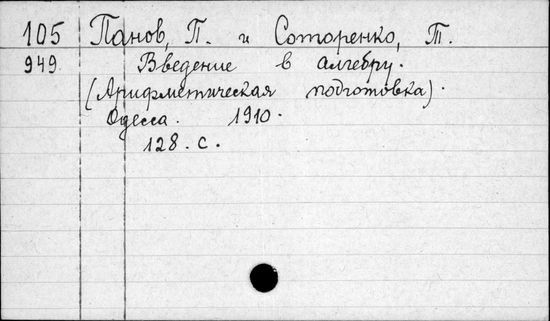 105 Панов, П. и Соторенко, Т.
949. Введение в алгебру.
(Арифметическая подготовка).
Одесса. 1910.
128. с.